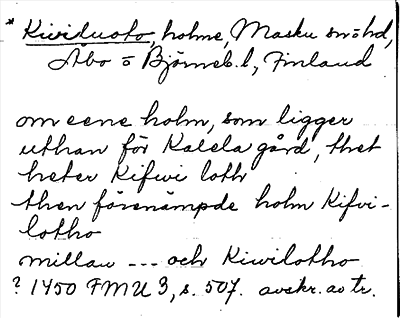 * Kiviluoto, holme, Masku snöhd,
Åbo o Björneb. l, Finland
om eene holm, som ligger
uthan för Kalela gård, thet
heter Kifwi loth
then förenämpde holm Kifvi-
lotho
millan --- och Kiwilotho
? 1450 FMU 3, s. 507. avskr. av tr.